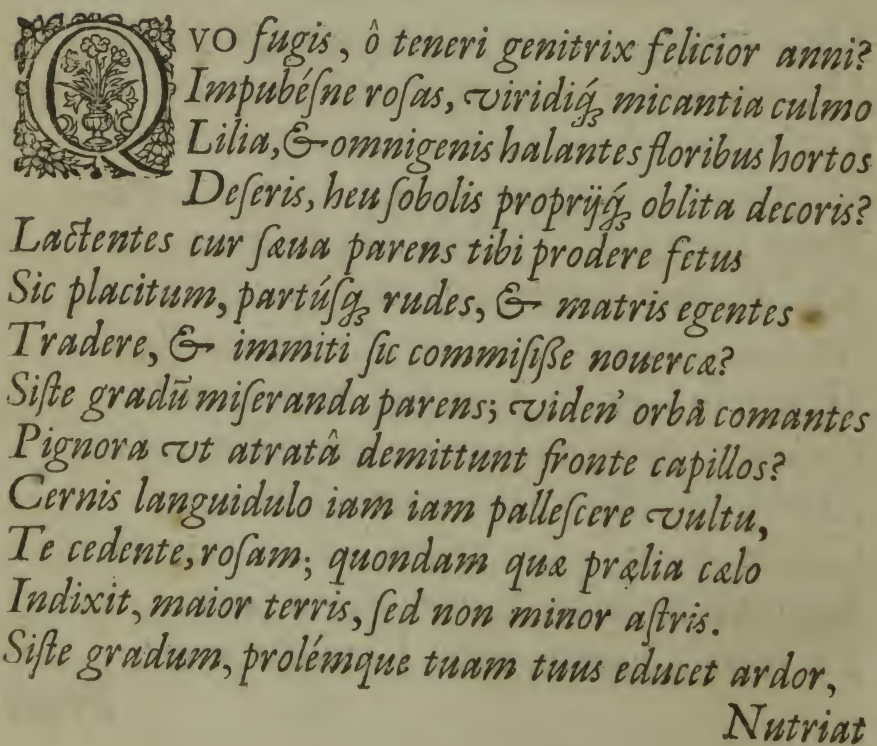 QVO fugis, ô teneri genitrix felicior anni?
Impubéſne roſas, viridiq́ꝫ micantia culmo
Lilia, & omnigenis halantes floribus hortos
Deſeris, heu ſobolis proprijq́ꝫ oblita decoris?
Lactentes cur ſæua parens tibi prodere fetus
Sic placitum, partúſqꝫ rudes, & matris egentes
Tradere, & immiti ſic commiſiſſe nouercæ?
Siſte gradū miſeranda parens; viden' orba comantes
Pignora vt atratâ demittunt fronte capillos?
Cernis languidulo iam iam palleſcere vultu,
Te cedente, roſam; quondam quæ prælia cælo
Indixit, maior terris, ſed non minor aſtris.
Siſte gradum, prolémque tuam tuus educet ardor,
Nutriat